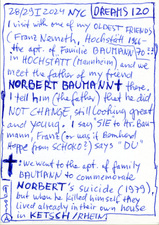 28/29 I 2024 NYC DREAMS 120
I visit with one of my OLDEST FRIENDS
(Franz Nemeth, Hochstätt 1966-
the apt. of Familie BAUMANN
in HOCHSTÄTT (Mannheim) and we
meet the father of my friend
NORBERT BAUMANN† there,
I tell him (the father) that he did
NOT CHANGE, still looking great
and YOUNG. I say SIE to Mr. Bau-
mann, Franz (or was it Bernhard
Hoppe from SCHOKO?) says "DU"
†: we went to the apt. of family
BAUMANN to commemorate
NORBERT's suicide (1979),
but when he killed himself they
lived already in their own house
in KETSCH/RHEIN